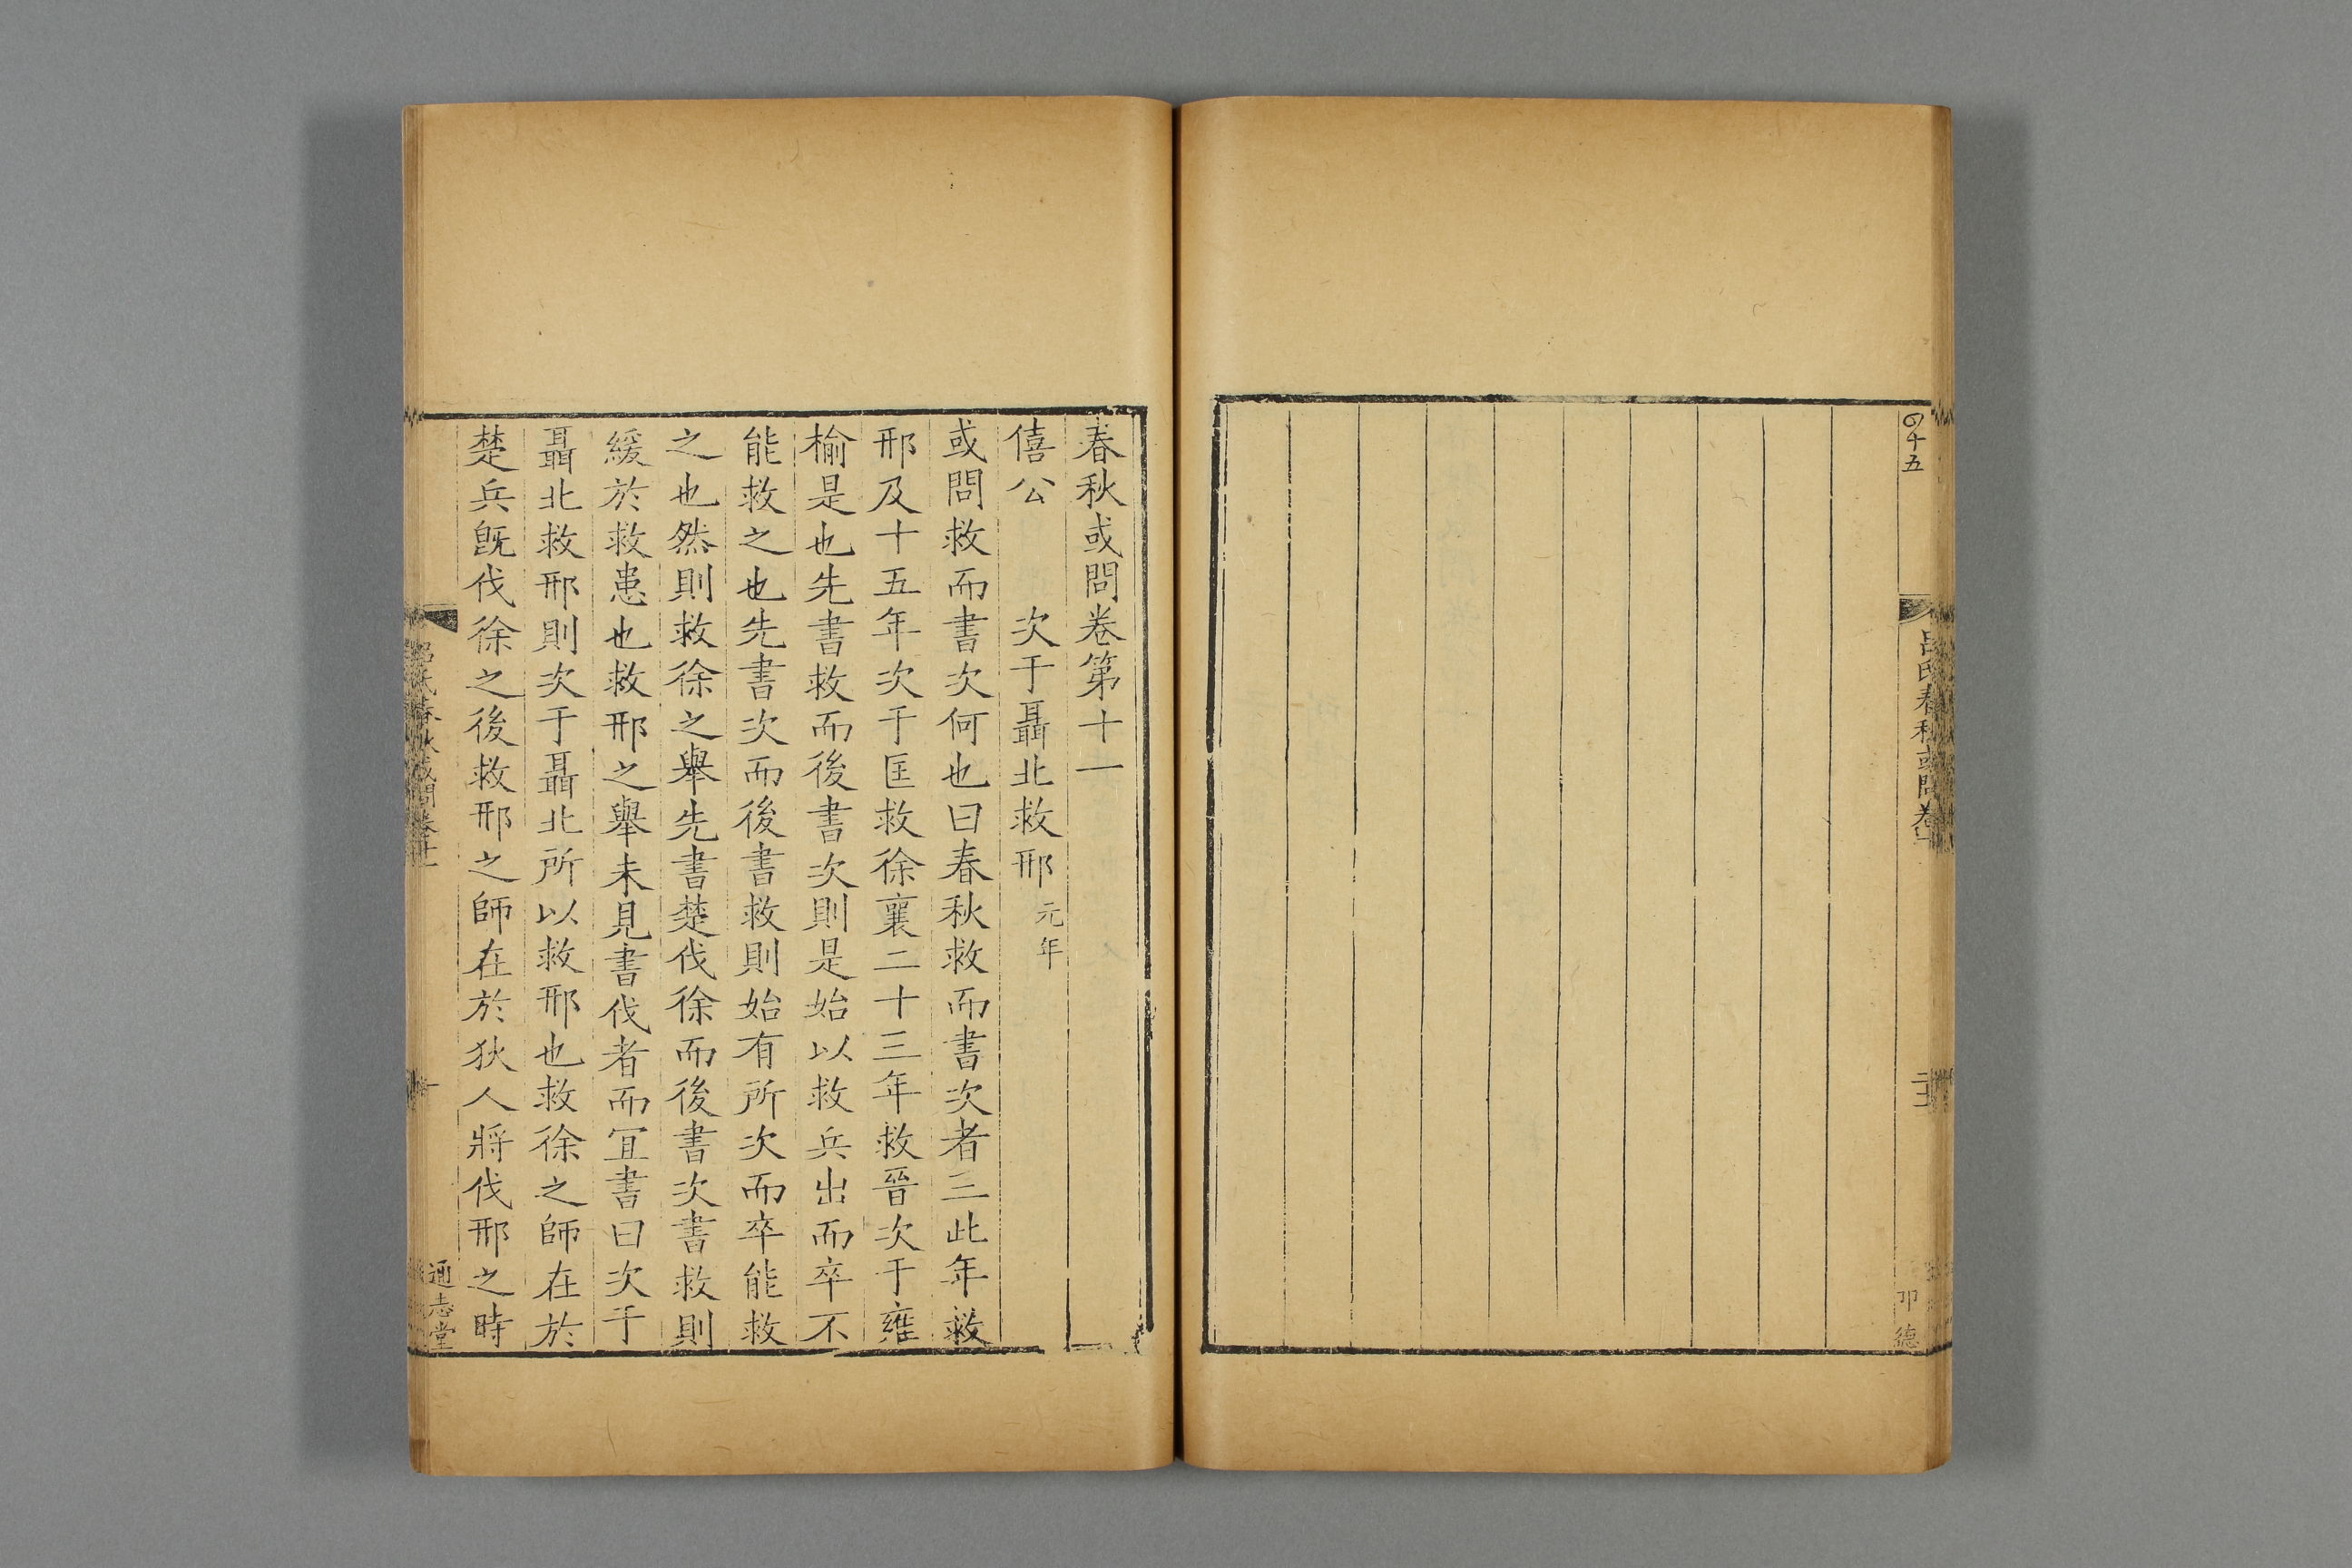 四十五
呂氏春秋或問卷十
二十二
卩德
春秋或問卷第十一
僖公　　次于聶北救邢元年
或問救而書次何也曰春秋救而書次者三此年救
邢及十五年次于匡救徐襄二十三年救晉次于雍
榆是也先書救而後書次則是始以救兵出而卒不
能救之也先書次而後書救則始有所次而卒能救
之也然則救徐之舉先書楚伐徐而後書次書救則
緩於救患也救邢之舉未見書伐者而冝書曰次于
聶北救邢則次于聶北所以救邢也救徐之師在於
楚兵旣伐徐之後救邢之師在於狄人將伐邢之時
呂氏春秋或問卷十一
一
通志堂